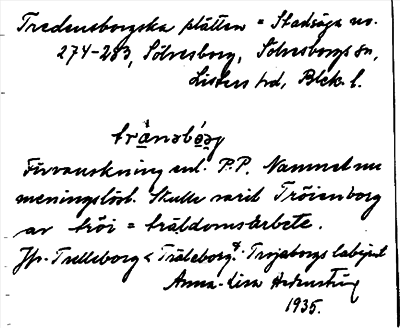 Tredensborgska slätten = Stadsäga no.
274-283, Sölvesborg, Sölvesborgs sn,
Listers hd, Blek. l.
trä̀nsbórg
Förvanskning enl. P.P. Namnet nu
meningslöst. Skulle varit Tröienborg
av tröi = träldomsarbete.
Jfr. Trelleborg < Träleborg? Trojaborgs labyrint
Anna-Lisa
1935.